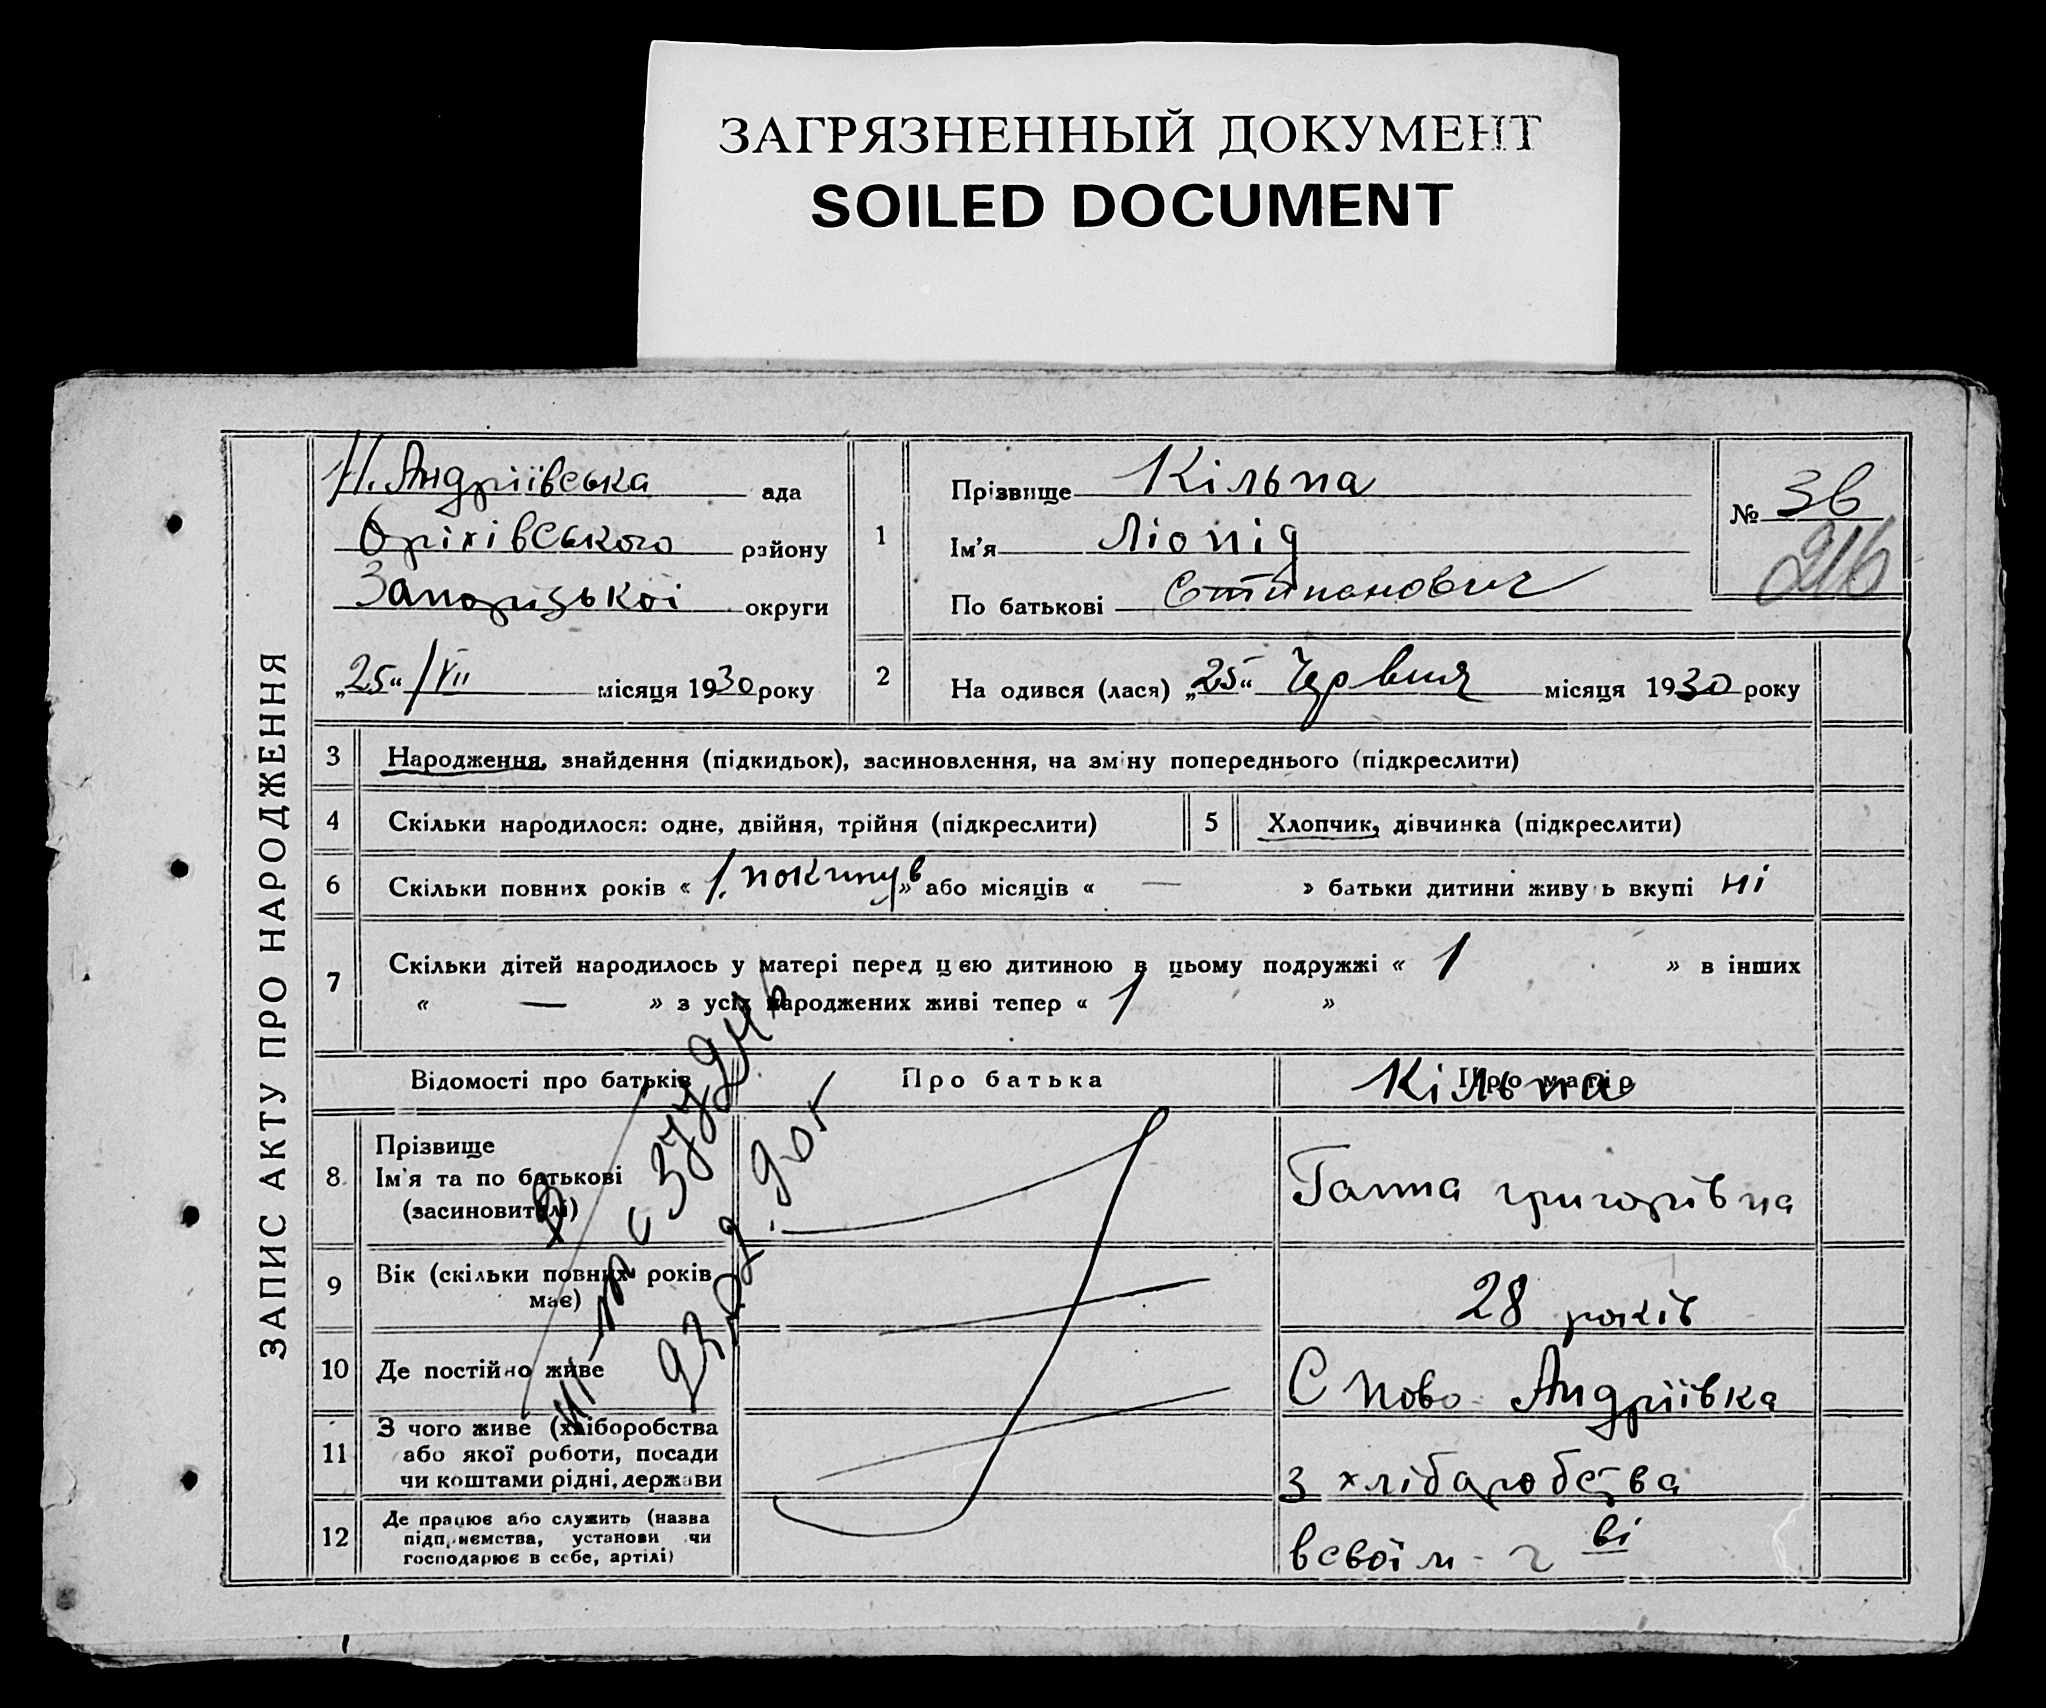 ЗАГРЯЗНЕННЫЙ ДОКУМЕНТ
SOILED DOCUMENT
ЗАПИС АКТУ ПРО НАРОДЖЕННЯ
Н. Андріївська ада
Оріхівського району
Запоріцької округи
„25“ /VII місяця 1930 року
1
Прізвище Кільпа
Ім'я Ліонід
По батькові Стипанович
№ 36
216
2 На одився (лася) „25“ Червня місяця 1930 року
3 Народження, знайдення (підкидьок), засиновлення, на зміну попереднього (підкреслити)
4 Скільки народилося: одне, двійня, трійня (підкреслити) 5 Хлопчик, дівчинка (підкреслити)
6 Скільки повних років « 1. покинув » або місяців « — » батьки дитини живу ь вкупі ні
7 Скільки дітей народилось у матері перед цією дитиною в цьому подружжі « 1 » в інших
« — » з усіх народжених живі тепер « 1 »
Відомості про батьків Про батька Про матір
Кільпа
8 Прізвище
Ім'я та по батькові
(засиновителі)
Ганна григорівна
9 Вік (скільки повних років
має)
28 років
10 Де постійно живе
С Ново-Андріївка
11 З чого живе (хліборобства
або якої роботи, посади
чи коштами рідні, держави
з хлібаробства
12 Де працює або служить (назва
підприємства, установи чи
господарює в себе, артілі)
в своїм - г ві